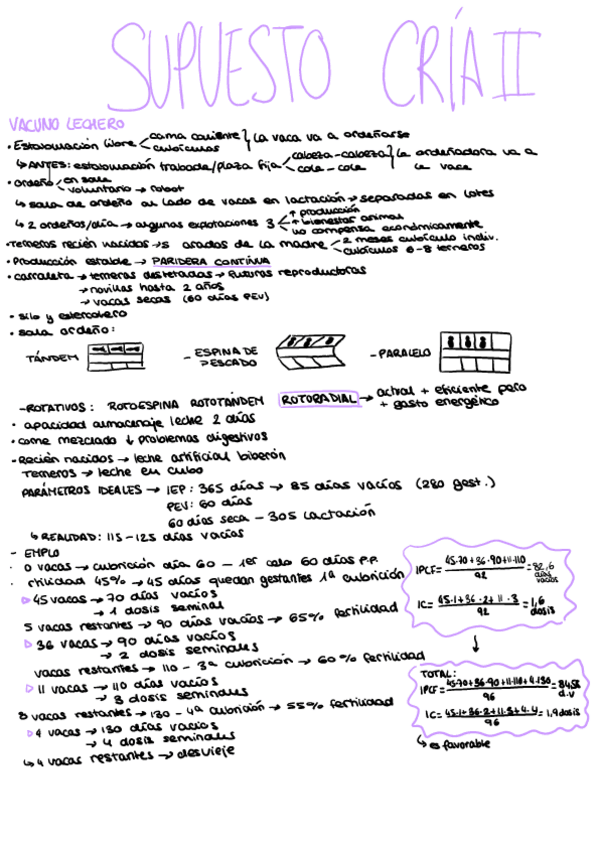 SUPUESTO CRÍA II
VACUNO LECHERO
· Estabulación libre cama caliente
cubículos
La vaca va a ordeñarse
↳ ANTES: estabulación trabada/plaza fija cabeza-cabeza
cola-cola
la ordeñadora va a la vaca
· Ordeño en sala
voluntario → robot
↳ sala de ordeño al lado de vacas en lactación → separadas en lotes
↳ 2 ordeños/día → algunas explotaciones 3 ↑ producción
↑ bienestar animal
no compensa económicamente
· Terneros recién nacidos → s arados de la madre 2 meses cubículo indiv.
cubículos 6-8 terneros
· Producción estable → PARIDERA CONTÍNUA
· Corraleta → terneras destetadas → futuras reproductoras
→ novillas hasta 2 años
→ vacas secas (60 días PEV)
· silo y estercolero
· sala ordeño:
TÁNDEM
- ESPINA DE PESCADO
- PARALELO
- ROTATIVOS: ROTOESPINA ROTOTÁNDEM ROTORADIAL → actual + eficiente pero
+ gasto energético
· capacidad almacenaje leche 2 días
· come mezclado ↓ problemas digestivos
- Recién nacidos → leche artificial biberón
Terneros → leche en cubo
PARÁMETROS IDEALES → IEP: 365 días → 85 días vacíos (280 gest.)
PEV: 60 días
60 días seca - 305 lactación
↳ REALIDAD: 115-125 días vacíos
- EMPLO
· 0 vacas → cubrición día 60 - 1er celo 60 días P.P.
· rtilidad 45% → 45 días quedan gestantes 1ª cubrición
▷ 45 vacas → 70 días vacíos
→ 1 dosis seminal
5 vacas restantes → 90 días vacíos → 65% fertilidad
▷ 36 vacas → 90 días vacíos
→ 2 dosis seminales
vacas restantes → 110 - 3ª cubrición → 60% fertilidad
▷ 11 vacas → 110 días vacíos
→ 3 dosis seminales
8 vacas restantes → 130 - 4ª cubrición → 55% fertilidad
▷ 4 vacas → 130 días vacíos
→ 4 dosis seminales
↳ 4 vacas restantes → desvieje
IPCF = 45·70+36·90+11·110 / 92 = 82,6 días vacíos
IC = 45·1+36·2+11·3 / 92 = 1,6 dosis
TOTAL:
IPCF = 45·70+36·90+11·110+4·130 / 96 = 84,58 d.v
IC = 45·1+36·2+11·3+4·4 / 96 = 1,7 dosis
↳ es favorable